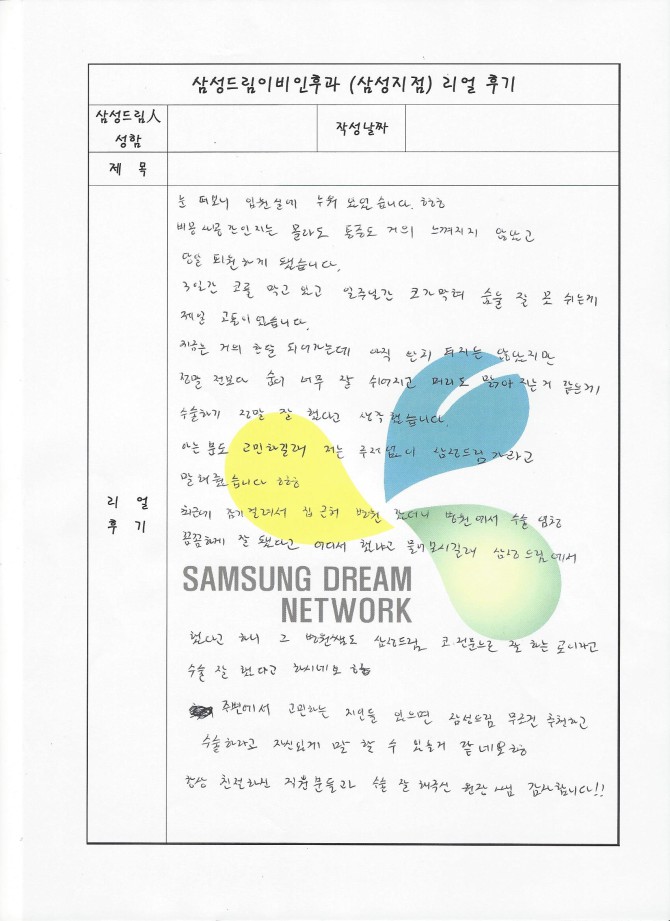 삼성드림이비인후과 (삼성지점) 리얼 후기
삼성드림人 성함
작성날짜
제 목
리 얼 후 기
눈 떠보니 입원실에 누워 있었습니다. ㅎㅎㅎ
비몽사몽간인지는 몰라도 통증도 거의 느껴지지 않았고
당일 퇴원하게 됐습니다.
3일간 코를 막고 있고 일주일간 코가 막혀 숨을 잘 못 쉬는게
제일 고통이었습니다.
지금은 거의 한달 되어가는데 아직 완치 되지는 않았지만
정말 전보다 숨이 너무 잘 쉬어지고 머리도 맑아 지는거 같은게
수술하기 정말 잘 했다고 생각했습니다.
아는 분도 고민하길래 저는 주저없이 삼성드림 가라고
말해줬습니다 ㅎㅎㅎ
최근에 감기걸려서 집 근처 병원 갔더니 병원에서 수술 엄청
꼼꼼하게 잘 됐다고 어디서 했냐고 물어보시길래 삼성드림에서
SAMSUNG DREAM
NETWORK
했다고 하니 그 병원쌤도 삼성드림 코 전문으로 잘 하는 곳이라고
수술 잘 했다고 하시네요 ㅎㅎ
주변에서 고민하는 지인들 있으면 삼성드림 무조건 추천하고
수술하라고 자신있게 말 할 수 있을거 같네요 ㅎㅎ
항상 친절하신 직원분들과 수술 잘 해주신 원장쌤 감사합니다!!